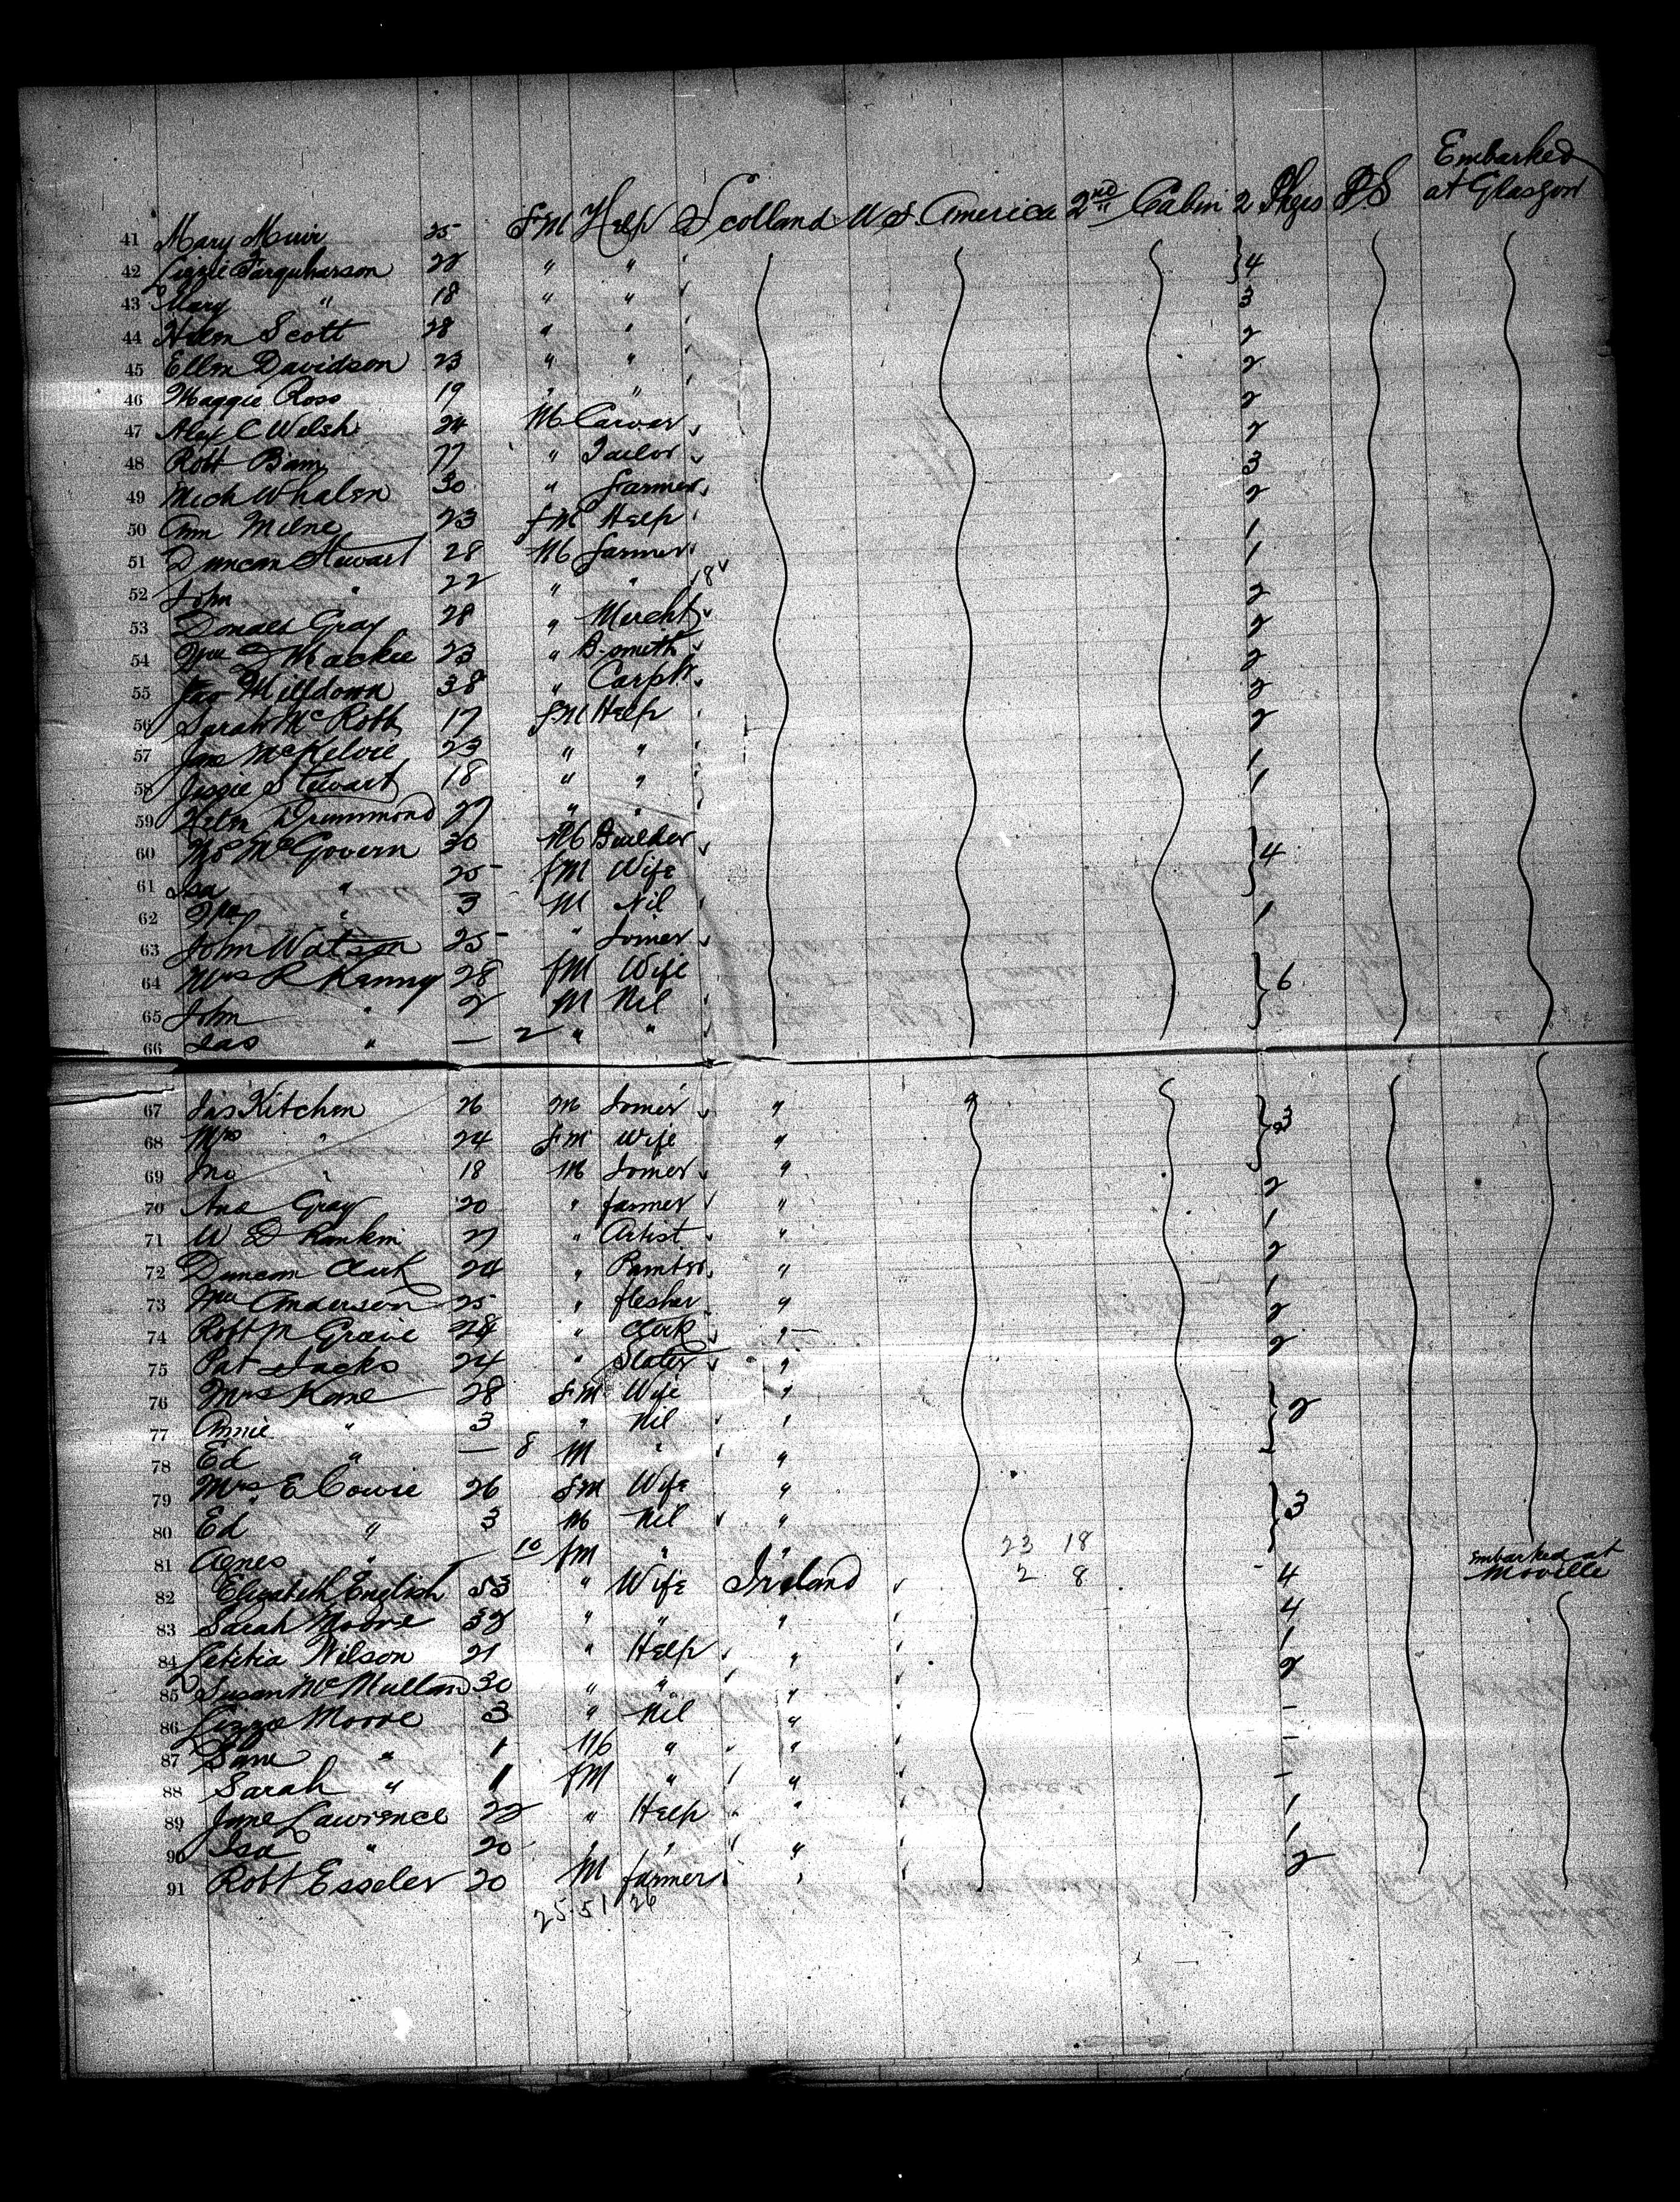 Embarked
at Glasgow
41 Mary Muir 35 FM Help Scotland U.S. America 2nd Cabin 2 Pkges P.S
42 Lizzie Farquharson 22 " " 4
43 Mary " 18 " " 3
44 Helen Scott 28 " " 2
45 Ellen Davidson 23 " " 2
46 Maggie Ross 19 " " 2
47 Alex C Welsh 24 M Carver 2
48 Robt Bain 77 " Tailor 3
49 Mich Whalen 30 " Farmer 2
50 Ann Milne 23 FM Help 1
51 Duncan Stewart 28 M Farmer 1
52 John " 22 " " 18 2
53 Donald Gray 28 " Mercht 2
54 Wm D Mackie 23 " B-smith 2
55 38 " Carptr 2
56 Sarah Mc Robb 17 FM Help 2
57 Jane McKelvie 23 " " 1
58 Jessie Stewart 18 " " 1
59 Helen Drummond 27 " "
60 McGovern 30 M Builder 4
61 Isa " 25 FM Wife
62 Wm " 3 M Nil 1
63 John Watson 25 " Joiner
64 Mrs R Kenny 28 FM Wife 6
65 John " 2 M Nil
66 Jas " — 2 " "
67 Jas Kitchen 26 M Joiner " 3
68 Mrs " 24 FM Wife "
69 Jno " 18 M Joiner "
70 And Gray 20 " Farmer " 2
71 W D Rankin 27 " Artist " 1
72 Duncan Clark 24 " Painter " 2
73 Wm Anderson 25 " flesher " 1
74 Robt M 28 " Clerk " 2
75 Pat Jacks 24 " Slater " 2
76 Mrs Kane 28 FM Wife " 2
77 Annie " 3 " Nil "
78 Ed " — 8 M " "
79 Mrs E Cowie 26 FM Wife " 3
80 Ed " 3 M Nil "
81 Agnes " — 10 FM " " 23 18
82 Elizabeth English 53 " Wife Ireland 2 8 4 Embarked at
Moville
83 Sarah Moore 32 " " " 4
84 Letitia Wilson 21 " Help " 1
85 Susan McMullan 30 " " " 2
86 Lizzie Moore 3 " Nil " -
87 Sam " 1 M " " -
88 Sarah " 1 FM " " -
89 Jane Lawrence 22 " Help " 1
90 Isa " 20 " " " 1
91 Robt Esseler 20 M farmer " 2
25 51 26